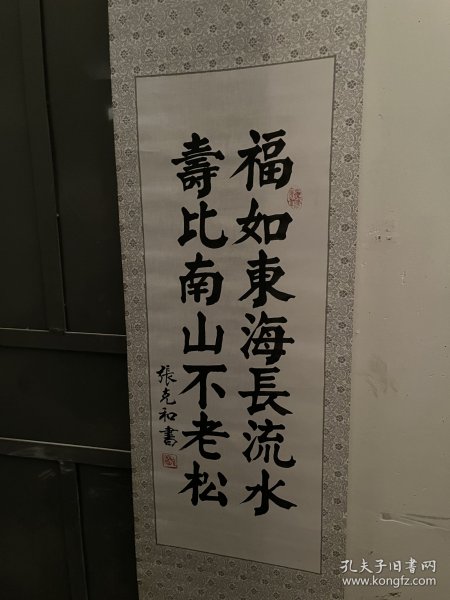 福如東海長流水
壽比南山不老松
張克和書
孔夫子旧书网
www.kongfz.com